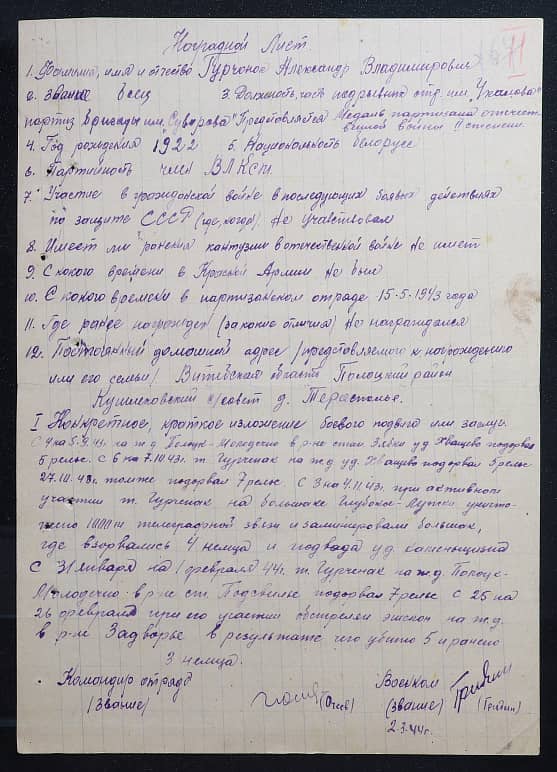 71
Наградной Лист.
1. Фамилия, имя и отчество Гурченок Александр Владимирович
2. Звание боец 3. Должность, часть подрывник отр. им. "Ухалова"
партиз бригады им. "Суворова" Представляется Медаль партизана отечест-
венной войны II степени.
4. Год рождения 1922 5. Национальность белорусс
6. Партийность член ВЛКСМ.
7. Участие в гражданской войне в последующих боевых действиях
по защите СССР (где, когда). Не участвовал
8. Имеет ли ранения контузии в отечественной войне не имеет
9. С какого времени в Красной Армии не был
10. С какого времени в партизанском отряде 15-5-1943 года
11. Где ранее награжден (за какие отличия) Не награждался
12. Постоянный домашний адрес /представляемого к награждению
или его семьи/ Витебская область Полоцкий район
с/совет д. Терасполье.
I Конкретное, краткое изложение боевого подвига или заслуг.
на ж.д. Полоцк-Молодечно в р-не стан Зябки у д. подорвал
5 рельс. С 6 на 7.10.43г. т. Гурченак на ж.д. у д. подорвал 5 рельс
27.10.43г. там же подорвал 7 рельс. С 3 на 4.11.43г. при активном
участии т. Гурченак на большаке Глубокое-Лужки уничто-
жено 1000 м телеграфной связи и заминировали большак,
где взорвались 4 немца и подвода у д.
С 31 января на 1 февраля 44г. т. Гурченак на ж.д. Полоцк-
Молодечно в р-не ст. Подсвилье подорвал 7 рельс С 25 на
26 февраля при его участии обстрелян эшелон на ж.д.
в р-не Задворье в результате чего убито 5 и ранено
3 немца.
Командир отряда Военком
(звание) (звание) (Гридин)
2.3.44г.